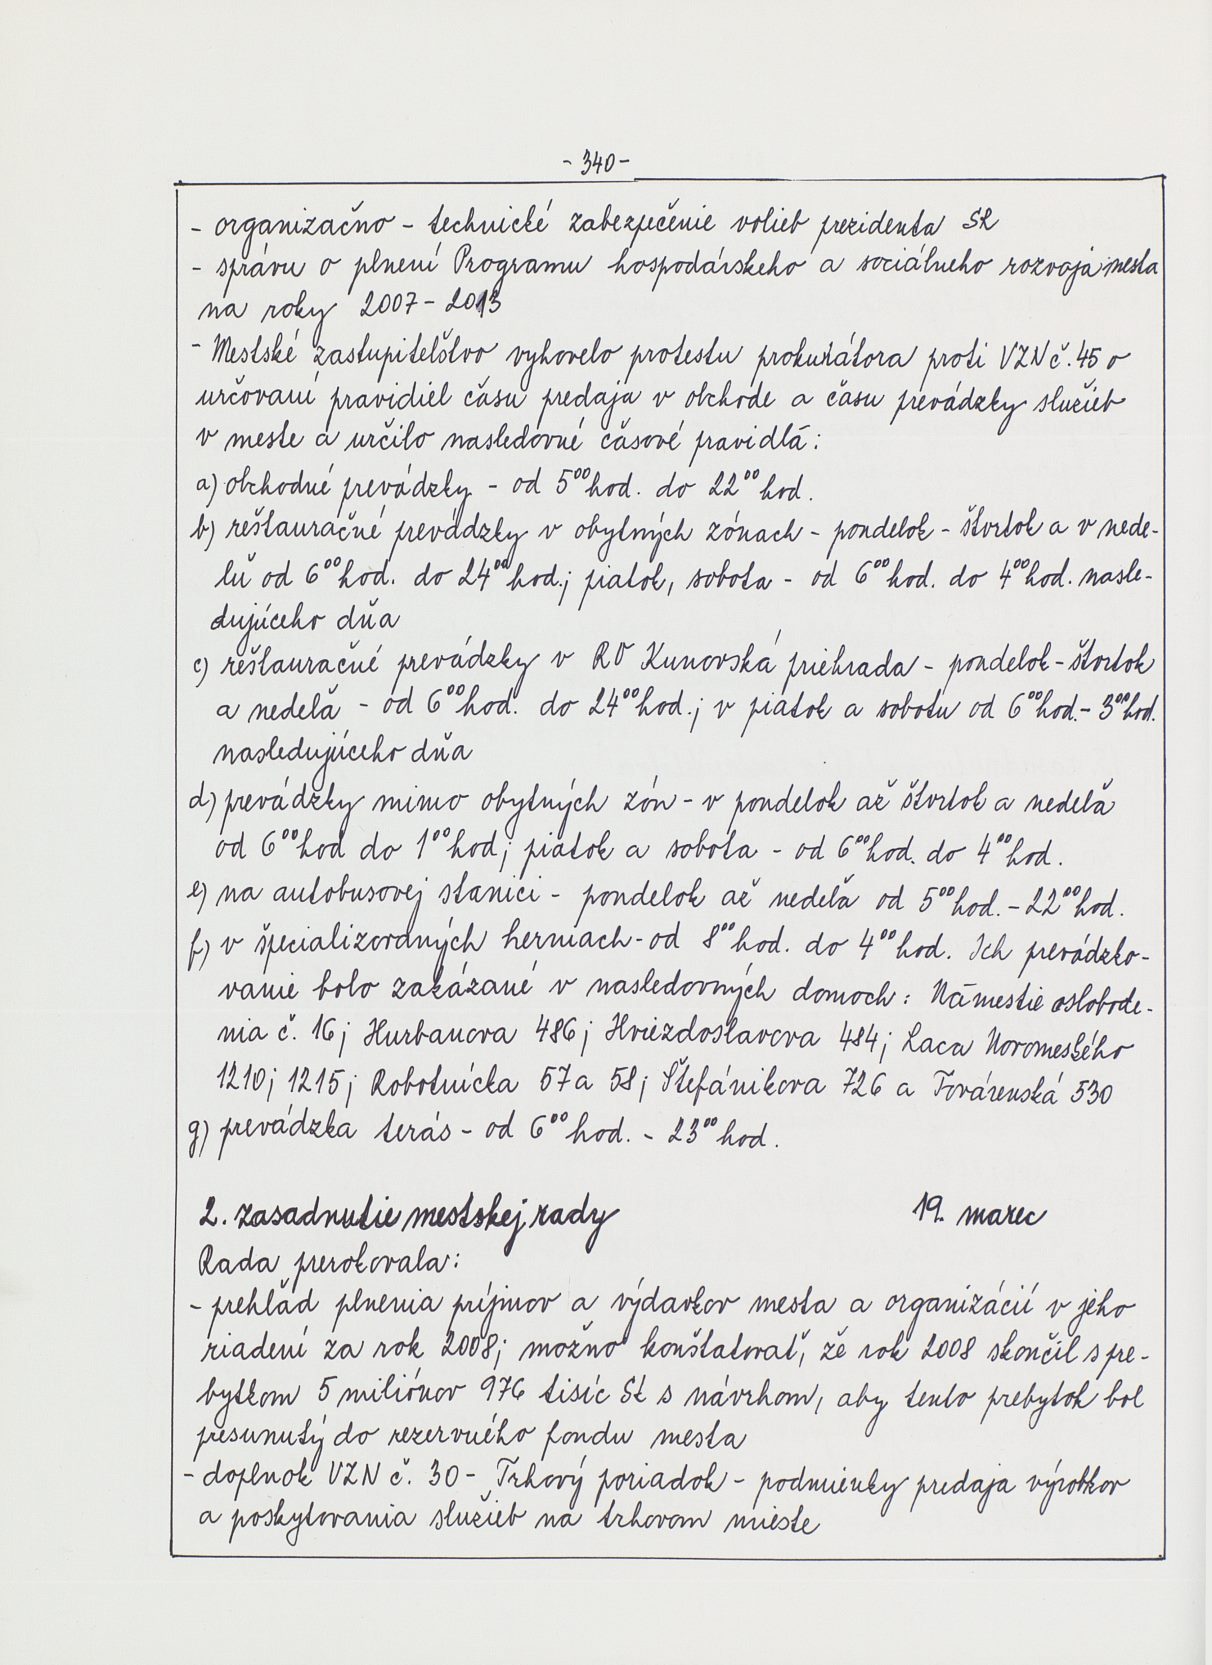 - 340 -
- organizačno - technické zabezpečenie volieb prezidenta SR
- správu o plnení Programu hospodárskeho a sociálneho rozvoja mesta
na roky 2007 - 2013
- Mestské zastupiteľstvo vyhovelo protestu prokurátora proti VZN č. 45 o
určovaní pravidiel času predaja v obchode a času prevádzky služieb
v meste a určilo nasledovné časové pravidlá:
a) obchodné prevádzky - od 5⁰⁰ hod. do 22⁰⁰ hod.
b) reštauračné prevádzky v obytných zónach - pondelok - štvrtok a v nede-
ľu od 6⁰⁰ hod. do 24⁰⁰ hod.; piatok, sobota - od 6⁰⁰ hod. do 4⁰⁰ hod. nasle-
dujúceho dňa
c) reštauračné prevádzky v RO Kunovská priehrada - pondelok - štvrtok
a nedeľa - od 6⁰⁰ hod. do 24⁰⁰ hod.; v piatok a sobotu od 6⁰⁰ hod. - 3⁰⁰ hod.
nasledujúceho dňa
d) prevádzky mimo obytných zón - v pondelok až štvrtok a nedeľa
od 6⁰⁰ hod do 1⁰⁰ hod; piatok a sobota - od 6⁰⁰ hod. do 4⁰⁰ hod.
e) na autobusovej stanici - pondelok až nedeľa od 5⁰⁰ hod. - 22⁰⁰ hod.
f) v špecializovaných herniach - od 8⁰⁰ hod. do 4⁰⁰ hod. Ich prevádzko-
vanie bolo zakázané v nasledovných domoch: Námestie oslobode-
nia č. 16; Hurbanova 486; Hviezdoslavova 484; Laca Novomeského
1210; 1215; Robotnícka 57 a 58; Štefánikova 726 a Továrenská 530
g) prevádzka terás - od 6⁰⁰ hod. - 23⁰⁰ hod.
2. zasadnutie mestskej rady 19. marec
Rada prerokovala:
- prehľad plnenia príjmov a výdavkov mesta a organizácií v jeho
riadení za rok 2008; možno konštatovať, že rok 2008 skončil s pre-
bytkom 5 miliónov 976 tisíc Sk s návrhom, aby tento prebytok bol
presunutý do rezervného fondu mesta
- doplnok VZN č. 30 - Trhový poriadok - podmienky predaja výrobkov
a poskytovania služieb na trhovom mieste